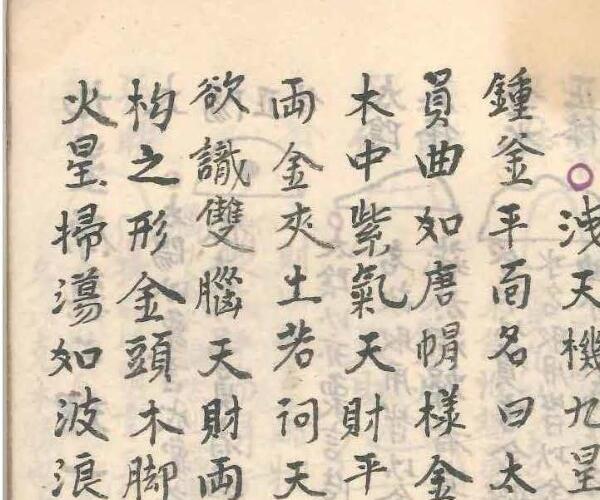 浅天機九星
鍾釜平面名曰太
員曲如唐帽樣金
木中紫氣天財平
両金夾土若祠天
欲識雙腦天財両
构之形金頭木脚
火星掃蕩如波浪